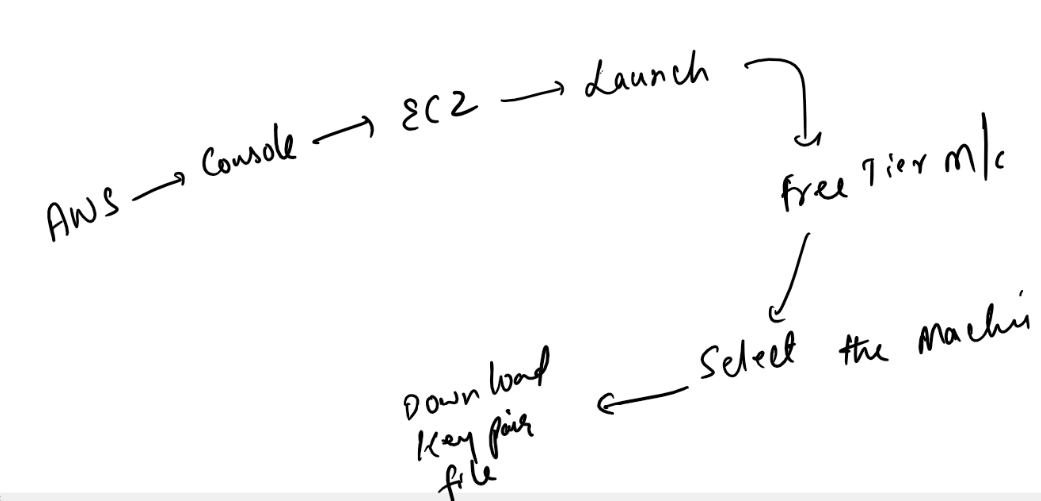 AWS → Console → EC2 → Launch
Free Tier M/c
Select the Machi
Download
Key pair
file